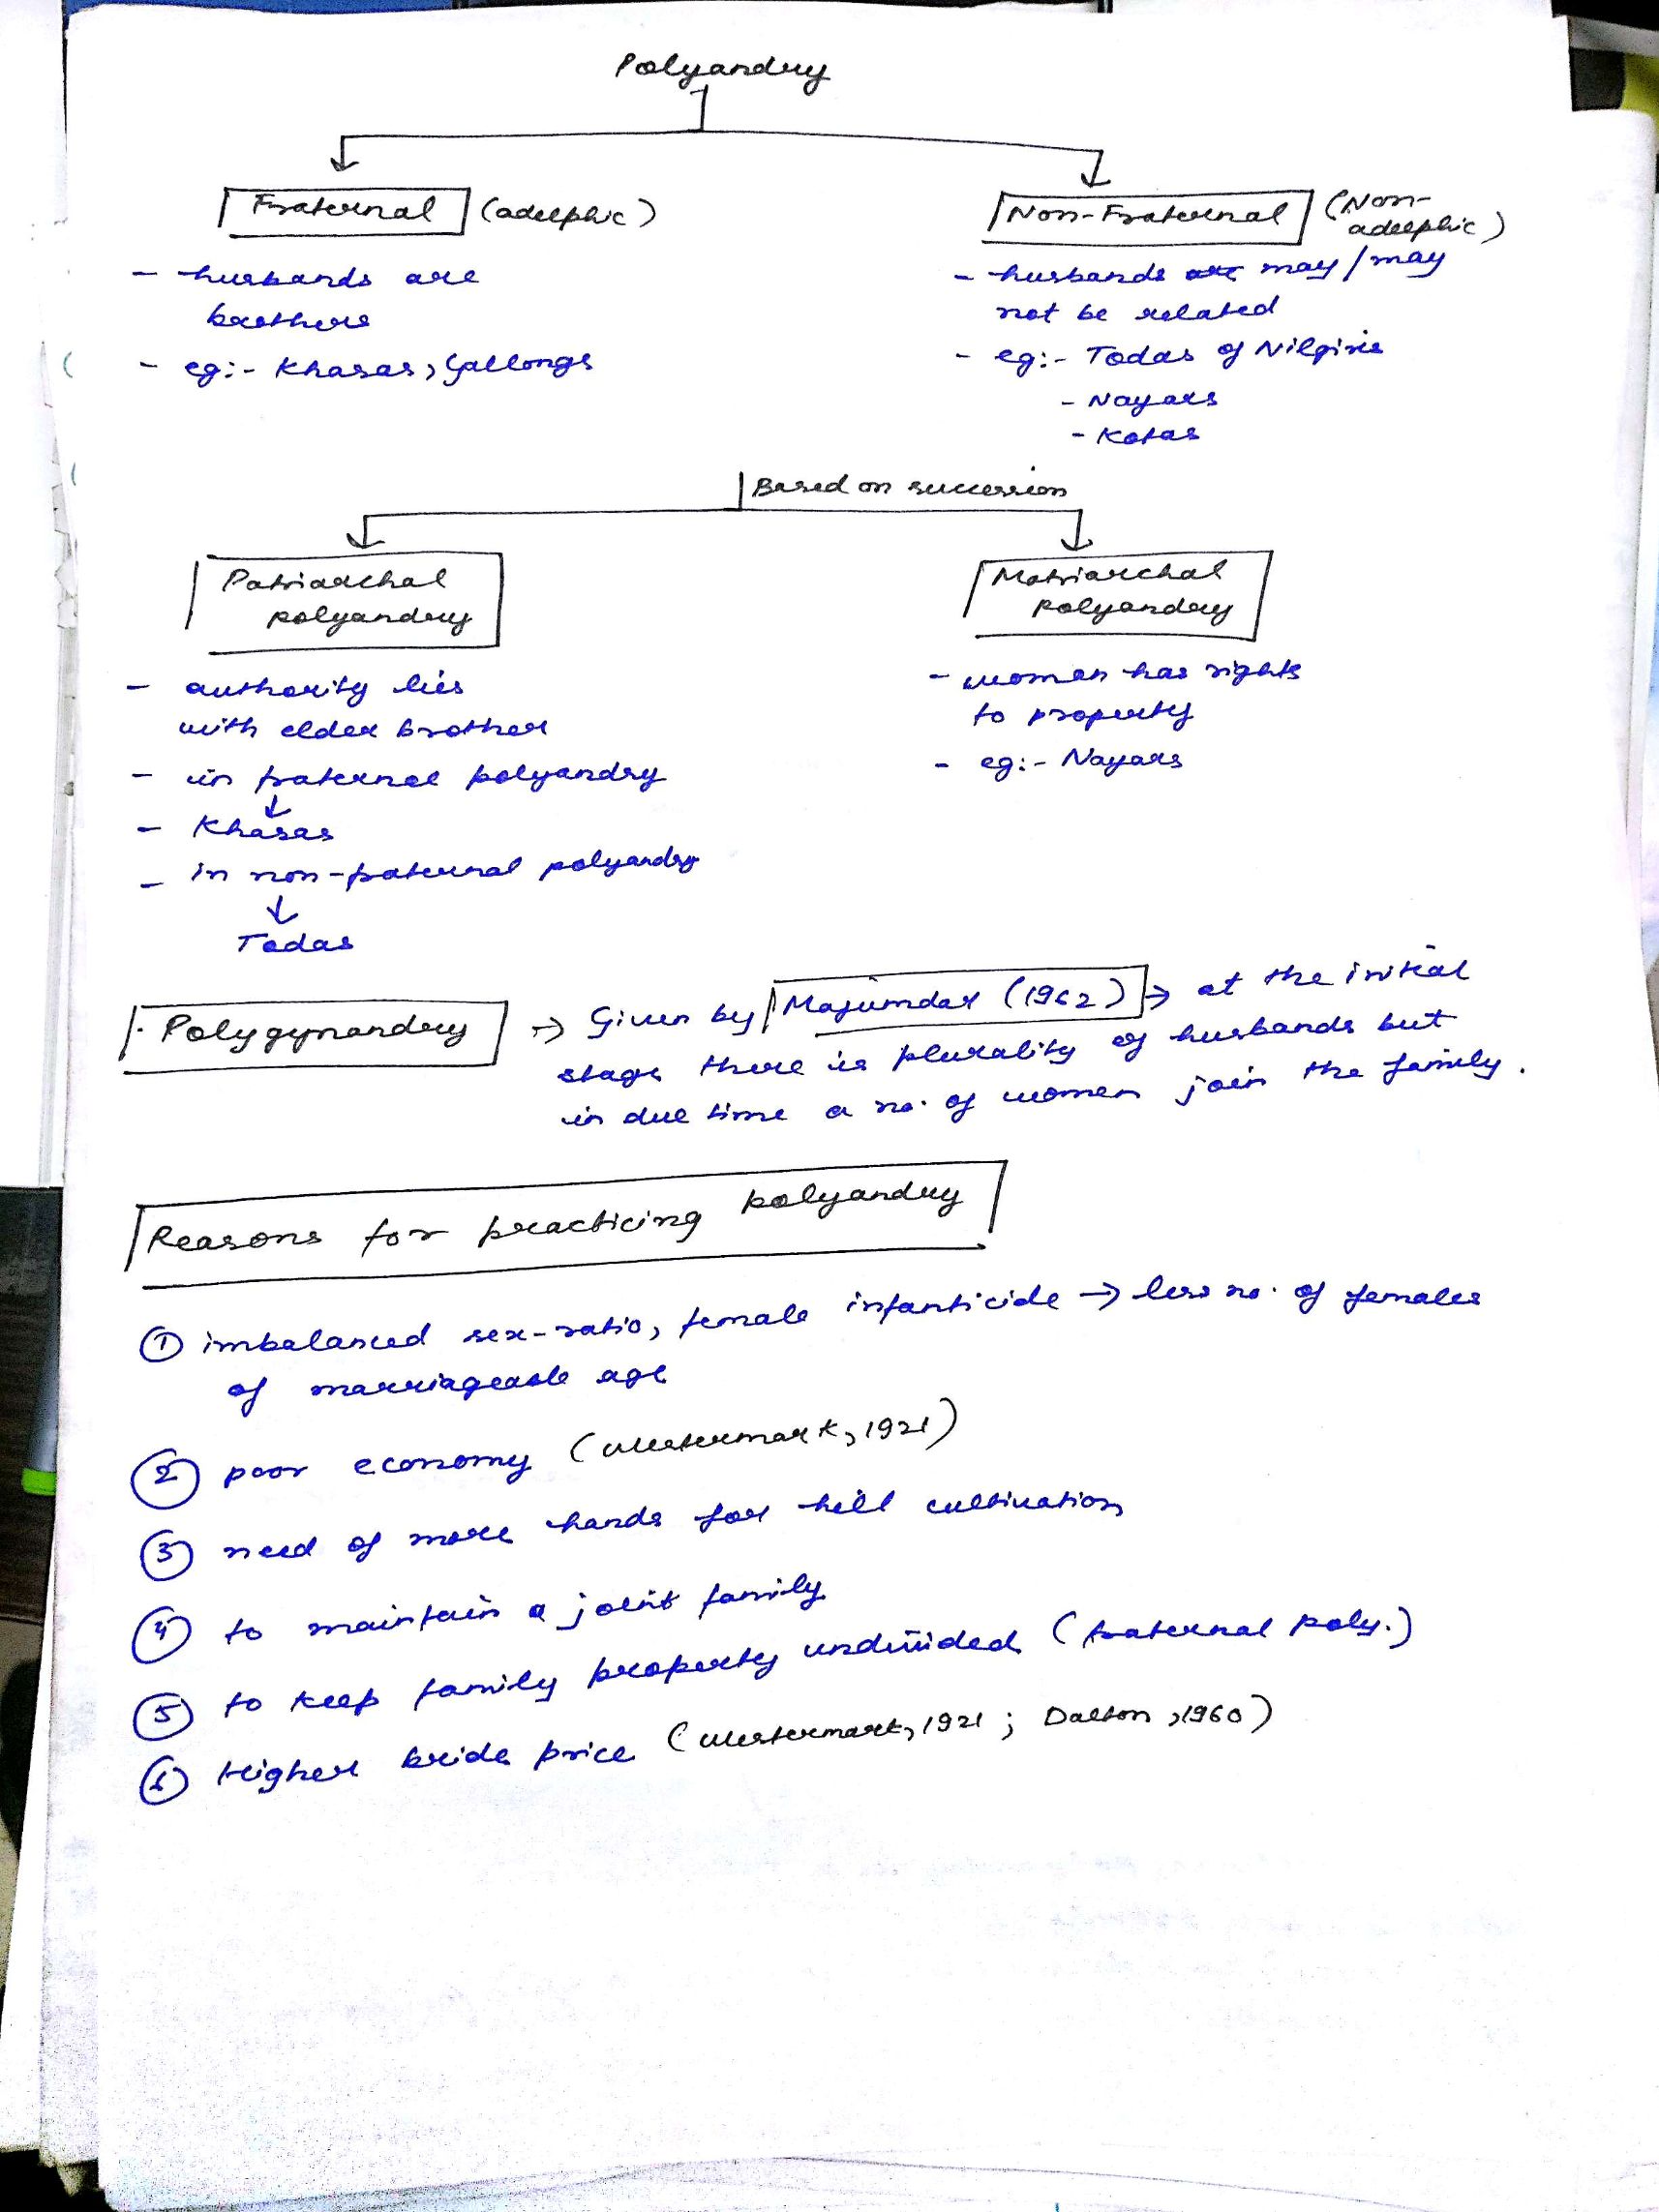 Polyandry
Fraternal (adelphic)
Non-Fraternal (Non-
adelphic)
- husbands are
brothers
- eg:- Khasas, Gallongs
- husbands may/may
not be related
- eg:- Todas of Nilgiris
- Nayars
- Kotas
Based on succession
Patriarchal
polyandry
Matriarchal
polyandry
- authority lies
with elder brother
- in fraternal polyandry
↓
- Khasas
- in non-fraternal polyandry
↓
Todas
- women has rights
to property
- eg:- Nayars
· Polygynandry → Given by Majumdar (1962) → at the initial
stage there is plurality of husbands but
in due time a no. of women join the family.
Reasons for practicing polyandry
① imbalanced sex-ratio, female infanticide → less no. of females
of marriageable age
② poor economy (Westermark, 1921)
③ need of more hands for hill cultivation
④ to maintain a joint family
⑤ to keep family property undivided (fraternal poly.)
⑥ Higher bride price (Westermark, 1921; Dalton, 1960)